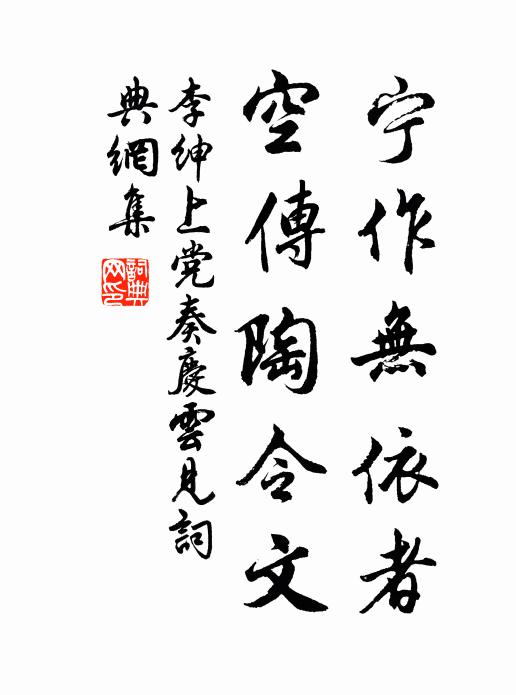 宁作無依者
空傳陶令文
李紳上党奏慶雲見詞
典網集
詞典网印